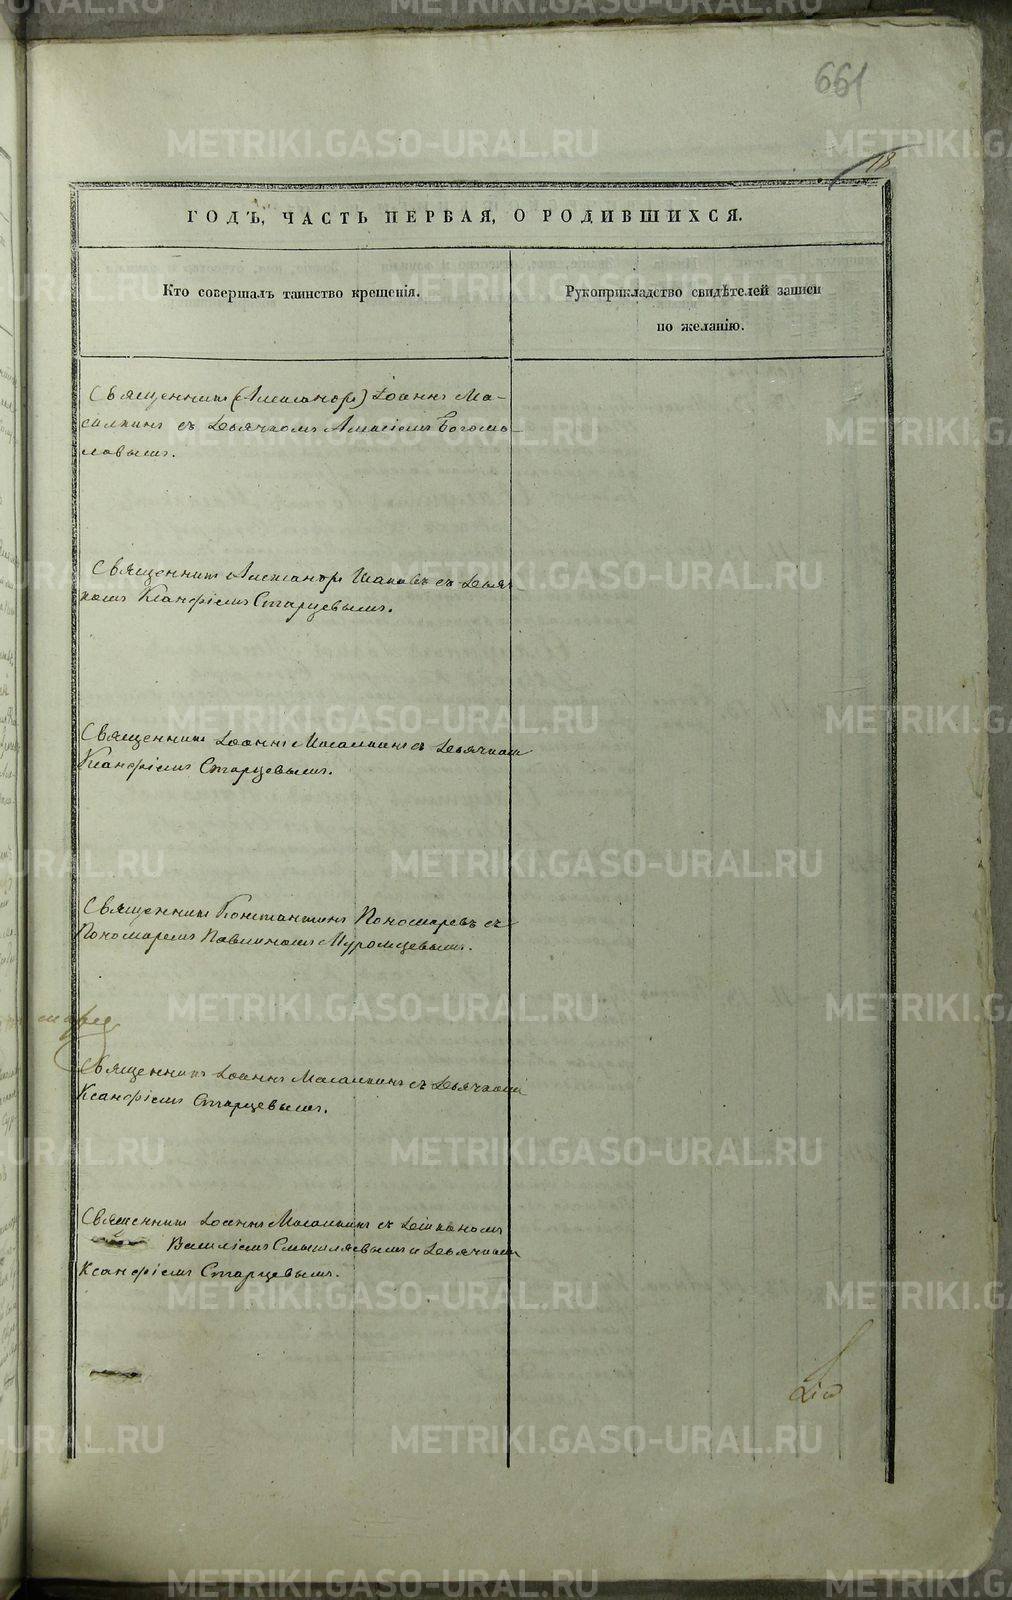 661
18
ГОДЪ, ЧАСТЬ ПЕРВАЯ, О РОДИВШИХСЯ.
Кто совершалъ таинство крещенія.
Рукоприкладство свидѣтелей записи
по желанію.
Священникъ (Александръ) Іоаннъ Ма-
салкинъ съ Дьячкомъ Алексіемъ Богомо-
ловымъ.
Священникъ Александръ съ Дьяч-
комъ Ксанфіемъ Старцевымъ.
Священникъ Іоаннъ Масалкинъ съ Дьячкомъ
Ксанфіемъ Старцевымъ.
Священникъ Константинъ Пономаревъ съ
Пономаремъ Павлиномъ Муромцевымъ.
Священникъ Іоаннъ Масалкинъ съ Дьячкомъ
Ксанфіемъ Старцевымъ.
Священникъ Іоаннъ Масалкинъ съ Діакономъ
Василіемъ Смышляевымъ и Дьячкомъ
Ксанфіемъ Старцевымъ.
METRIKI.GASO-URAL.RU